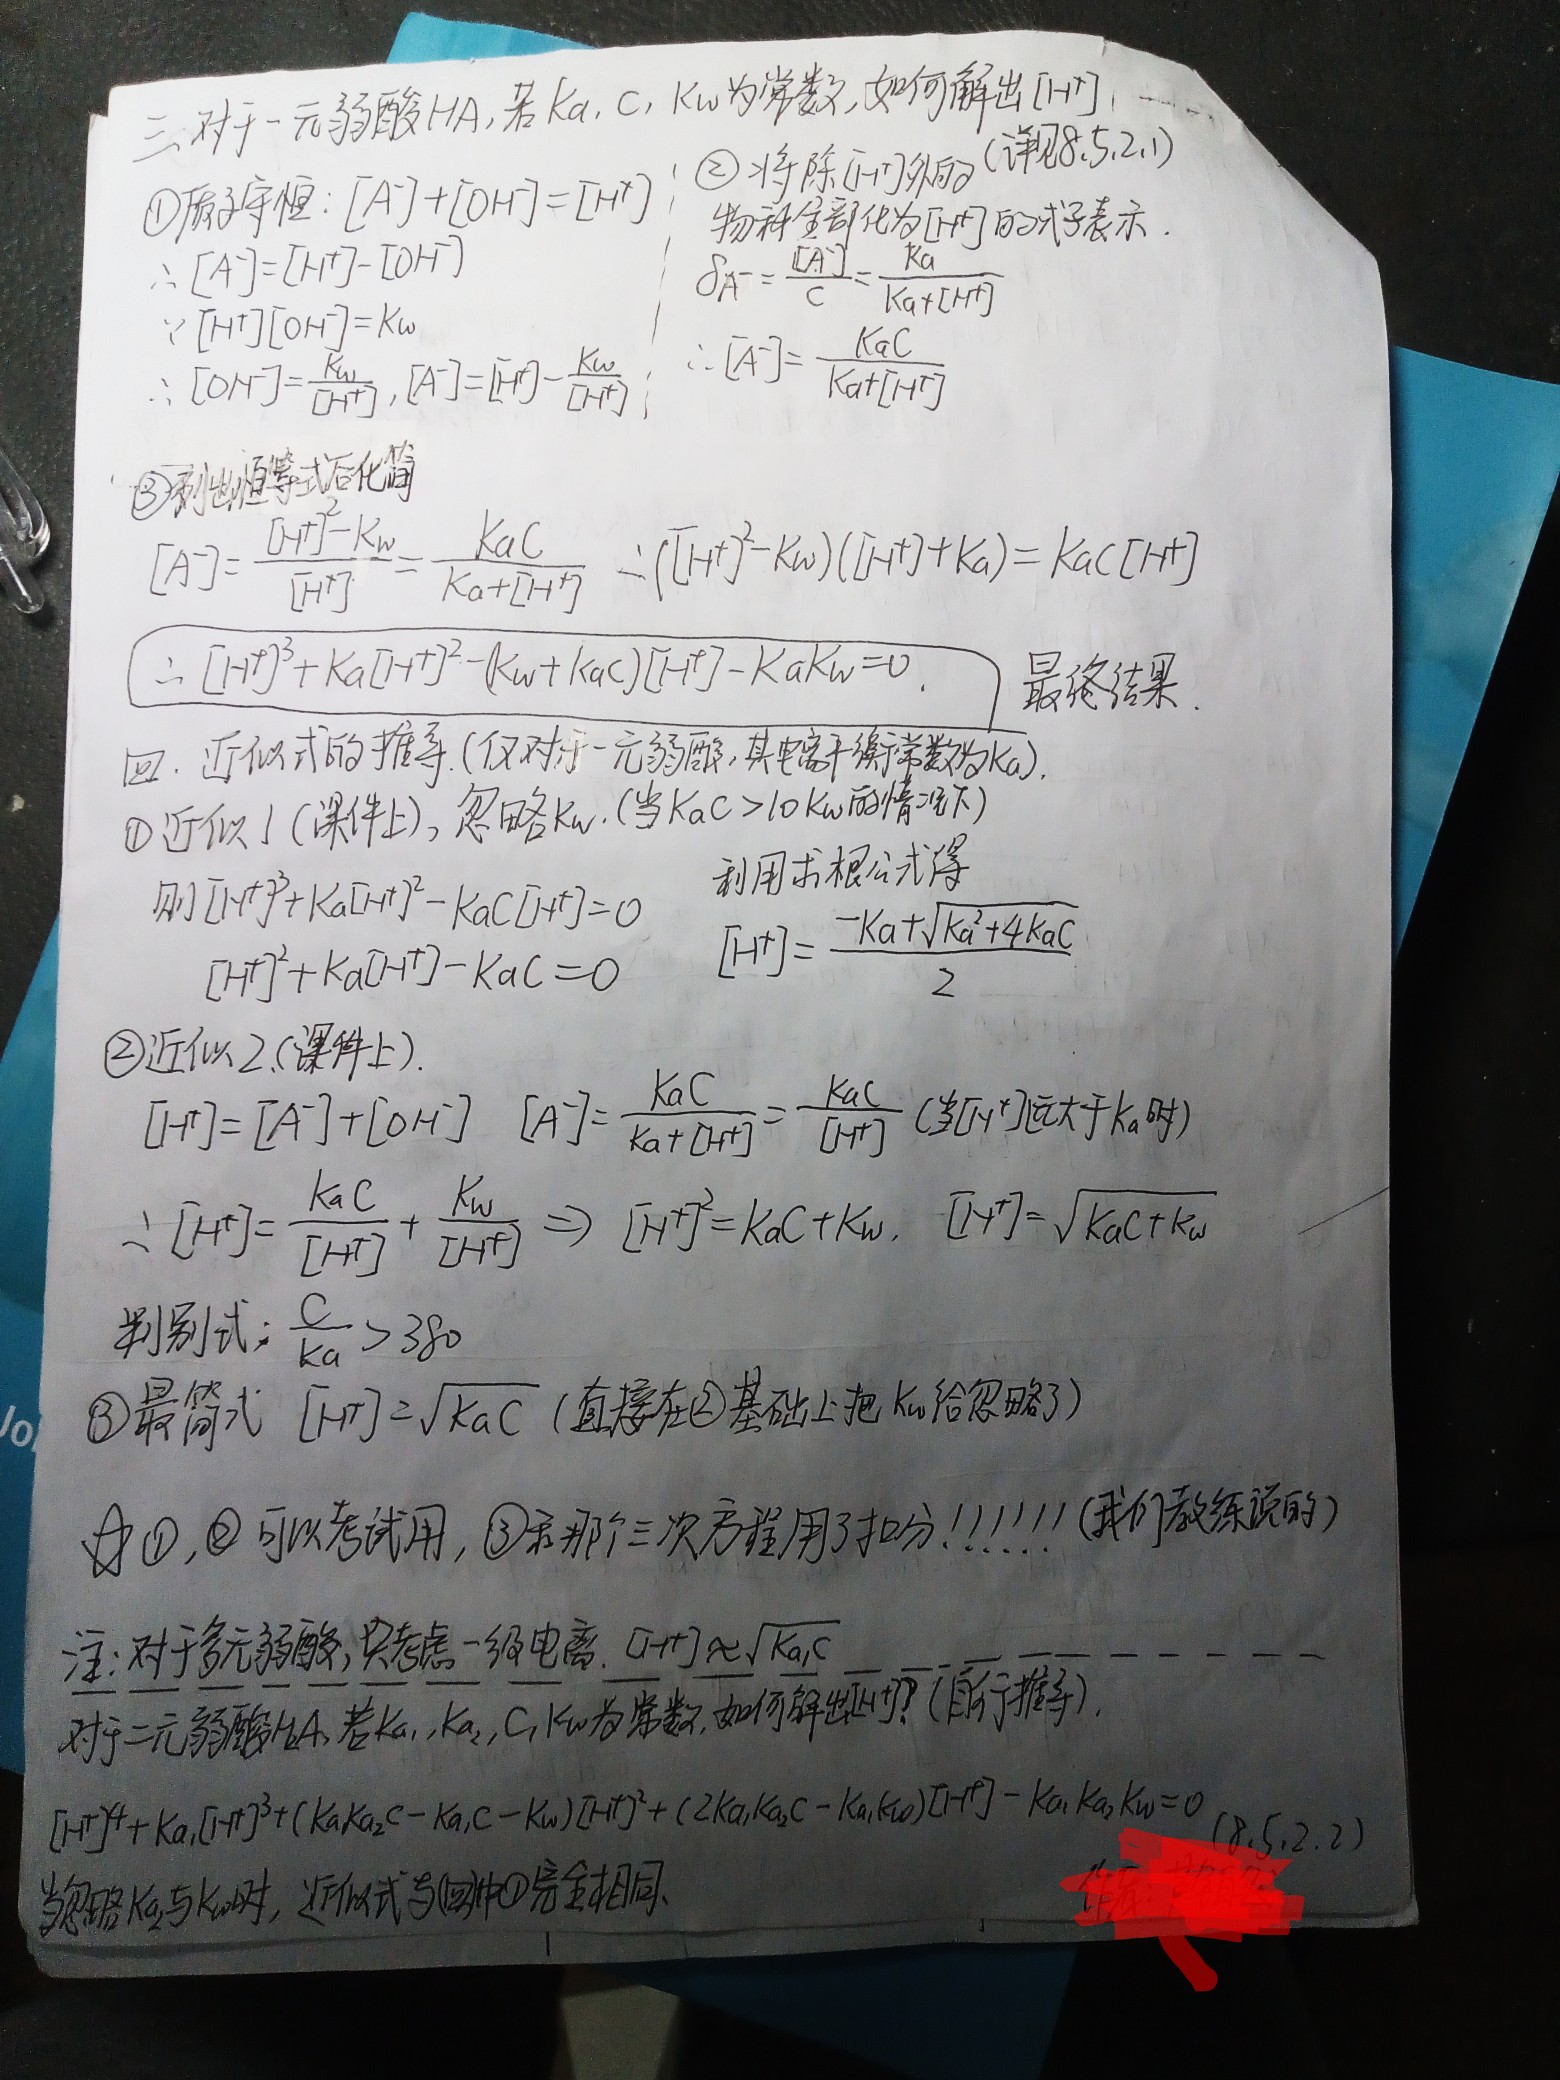 三、对于一元弱酸HA,若Ka,C,Kw为常数,如何解出[H⁺]
(详见8.5.2.1)
①质子守恒:[A⁻]+[OH⁻]=[H⁺]
∴[A⁻]=[H⁺]-[OH⁻]
∵[H⁺][OH⁻]=Kw
∴[OH⁻]=Kw/[H⁺],[A⁻]=[H⁺]-Kw/[H⁺]
②将除[H⁺]外的
物种全部化为[H⁺]的式子表示.
δA⁻=[A⁻]/C=Ka/(Ka+[H⁺])
∴[A⁻]=KaC/(Ka+[H⁺])
③列出恒等式后化简
[A⁻]=([H⁺]²-Kw)/[H⁺]=KaC/(Ka+[H⁺]) ∴([H⁺]²-Kw)([H⁺]+Ka)=KaC[H⁺]
∴[H⁺]³+Ka[H⁺]²-(Kw+KaC)[H⁺]-KaKw=0. 最终结果.
四.近似式的推导.(仅对于一元弱酸,其电离平衡常数为Ka).
①近似1(课件上),忽略Kw.(当KaC>10Kw的情况下)
则[H⁺]³+Ka[H⁺]²-KaC[H⁺]=0
[H⁺]²+Ka[H⁺]-KaC=0
利用求根公式得
[H⁺]=(-Ka+√(Ka²+4KaC))/2
②近似2.(课件上).
[H⁺]=[A⁻]+[OH⁻] [A⁻]=KaC/(Ka+[H⁺])=KaC/[H⁺](当[H⁺]远大于Ka时)
∴[H⁺]=KaC/[H⁺]+Kw/[H⁺]⇒[H⁺]²=KaC+Kw. [H⁺]=√(KaC+Kw)
判别式:C/Ka>380
③最简式 [H⁺]=√(KaC)(直接在②基础上把Kw给忽略了)
☆①,②可以考试用,③和那个三次方程用了扣分!!!!!!(我们教练说的)
注:对于多元弱酸,只考虑一级电离.[H⁺]≈√(Ka₁C)
对于二元弱酸H₂A,若Ka₁,Ka₂,C,Kw为常数,如何解出[H⁺]?(自行推导).
[H⁺]⁴+Ka₁[H⁺]³+(Ka₁Ka₂C-Ka₁C-Kw)[H⁺]²+(2Ka₁Ka₂C-Ka₁Kw)[H⁺]-Ka₁Ka₂Kw=0
(8.5.2.2)
当忽略Ka₂与Kw时,近似式与(四)中①完全相同.